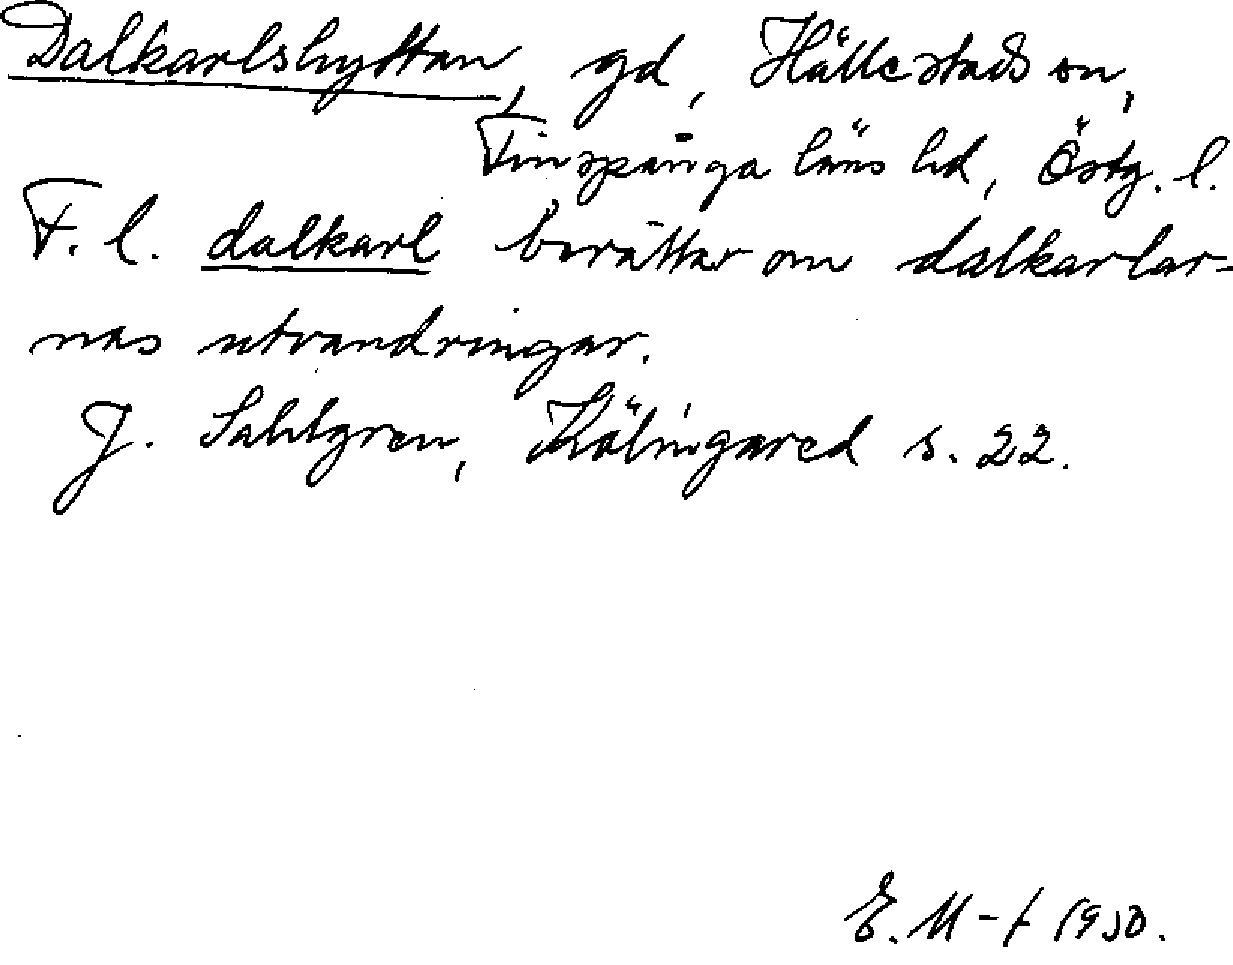 Dalkarlshyttan, gd, Hällestads sn,
Finspånga läns hd, Östg. l.
F. l. dalkarl berättar om dalkarlar-
nas utvandringar.
J. Sahlgren, Hölingared s. 22.
E. M-f 1930.